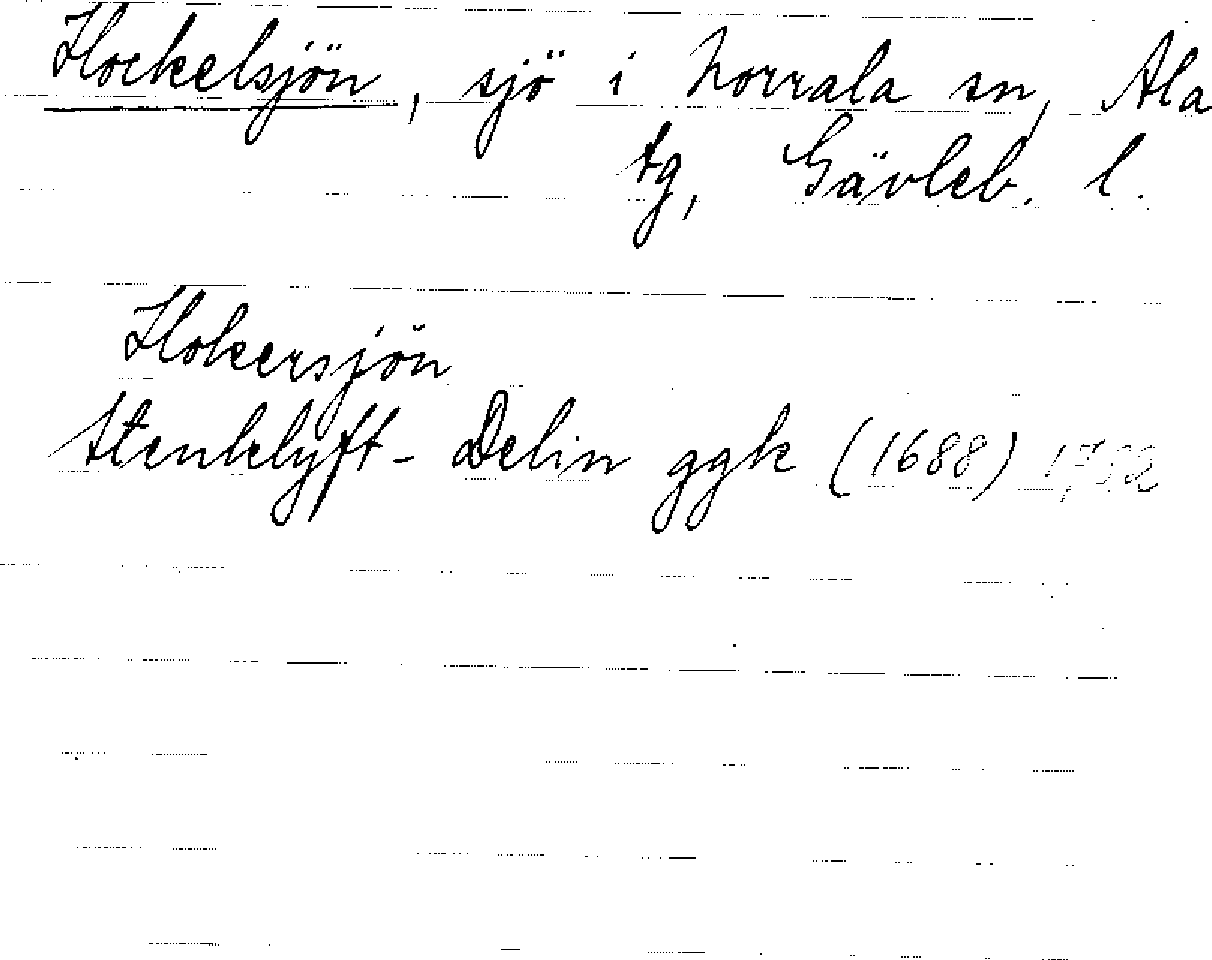 Hockelsjön, sjö i Norrala sn, Ala
tg, Gävleb. l.
Hokersjön
Stenklyft - Delin ggk (1688) 1752